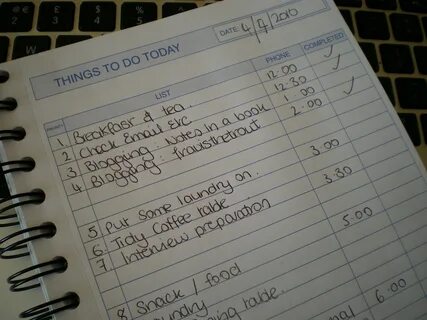 DATE: 4/7/2010
THINGS TO DO TODAY
PRIORITY LIST PHONE COMPLETED
1 Breakfast & tea. 12.00 ✓
2 Check email etc 12.30 ✓
3 Blogging: Notes in a book 1.00 ✓
4 Blogging: 2.00
5 Put some laundry on. 3.00
6. Tidy Coffee table 3.30
7 Interview preparation
5.00
8 Snack / food
table. 6.00